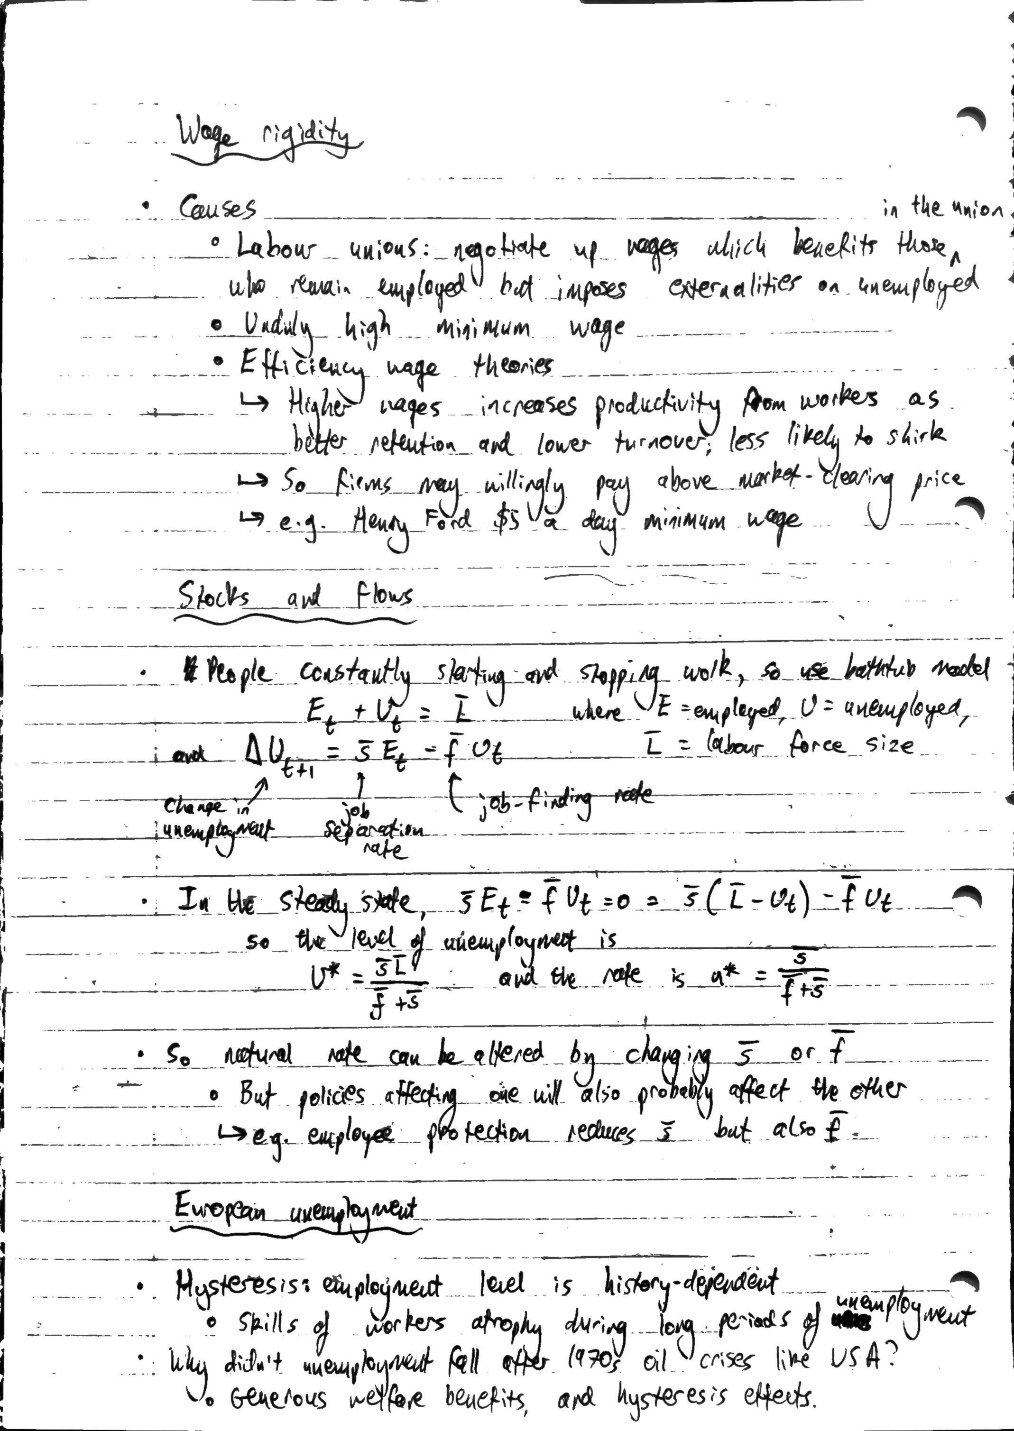 Wage rigidity
• Causes
◦ Labour unions: negotiate up wages which benefits those ^ in the union
who remain employed but imposes externalities on unemployed
◦ Unduly high minimum wage
◦ Efficiency wage theories
↳ Higher wages increases productivity from workers as
better retention and lower turnover; less likely to shirk
↳ So firms may willingly pay above market-clearing price
↳ e.g. Henry Ford $5 a day minimum wage
Stocks and Flows
• People constantly starting and stopping work, so use bathtub model
E_t + U_t = L̄ where E = employed, U = unemployed,
and ΔU_{t+1} = s̄ E_t - f̄ U_t L̄ = labour force size
change in unemployment ↗ job separation rate ↑ job-finding rate
• In the steady state, s̄ E_t - f̄ U_t = 0 = s̄ (L̄ - U_t) - f̄ U_t
so the level of unemployment is
U* = s̄ L̄ / (f̄ + s̄) and the rate is u* = s̄ / (f̄ + s̄)
• So natural rate can be altered by changing s̄ or f̄
◦ But policies affecting one will also probably affect the other
↳ e.g. employee protection reduces s̄ but also f̄.
European unemployment
• Hysteresis: employment level is history-dependent
◦ Skills of workers atrophy during long periods of unemployment
• Why didn't unemployment fall after 1970s oil crises like USA?
◦ Generous welfare benefits, and hysteresis effects.